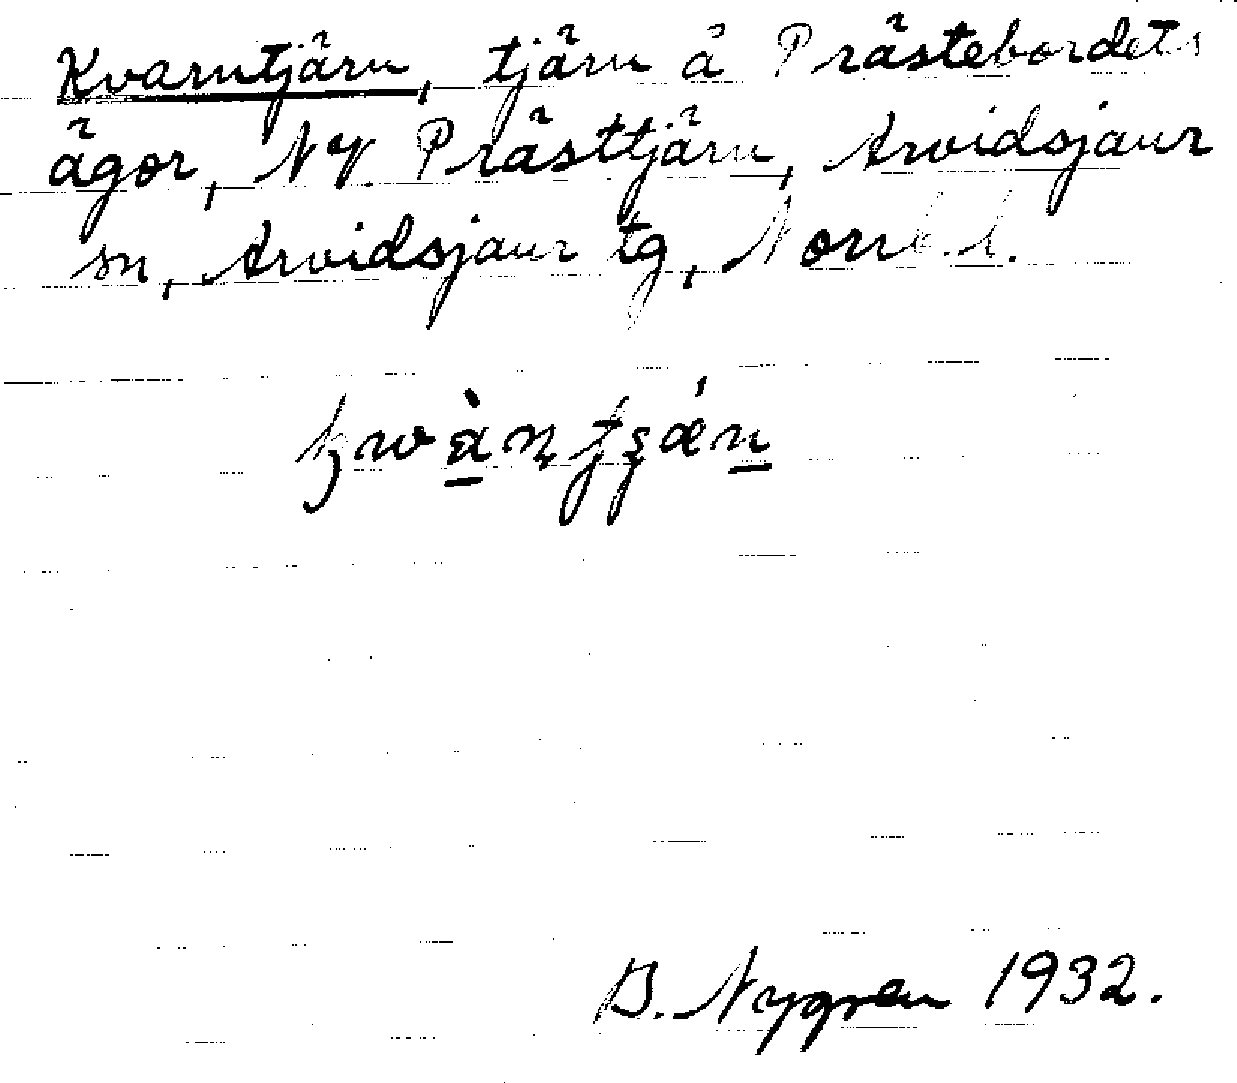 Kvarntjärn, tjärn å Prästebordets
ägor, NV. Prästtjärn, Arvidsjaur
sn, Arvidsjaur tg, Norrb. l.
B. Nygren 1932.